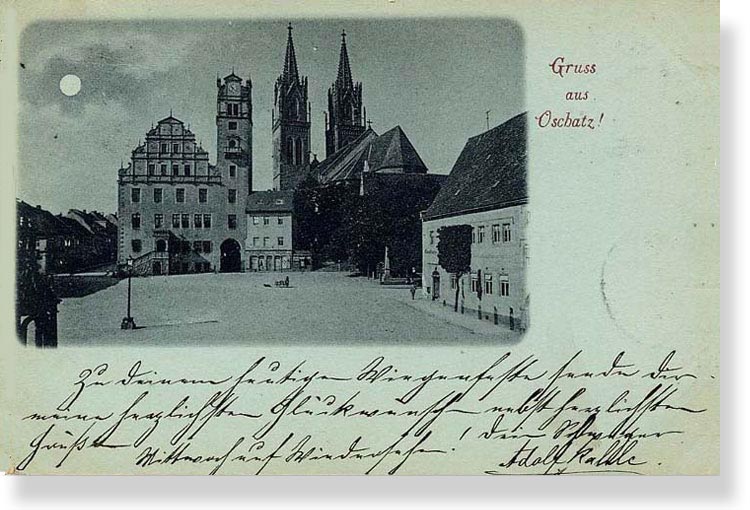 Gruss
aus
Oschatz!
Zu deinem heutigen Wiegenfeste sende dir
meine herzlichsten Glückwünsche nebst herzlichsten
Grüßen Dein Schwager
Mittwoch auf Wiedersehen! Adolf